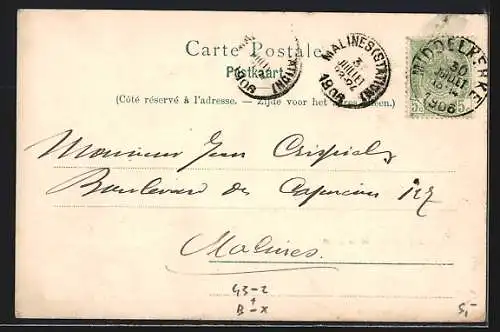 Carte Postale
Postkaart
(Côté réservé à l'adresse. — Zijde voor het adres alleen.)
MALINES (STATION)
3
JUILLET
1906
MIDDELKERKE
30
JUILLET
1906
5 5
Monsieur Jean
Boulevard des Capucins 127
Malines.
43-2
B-X
5,-